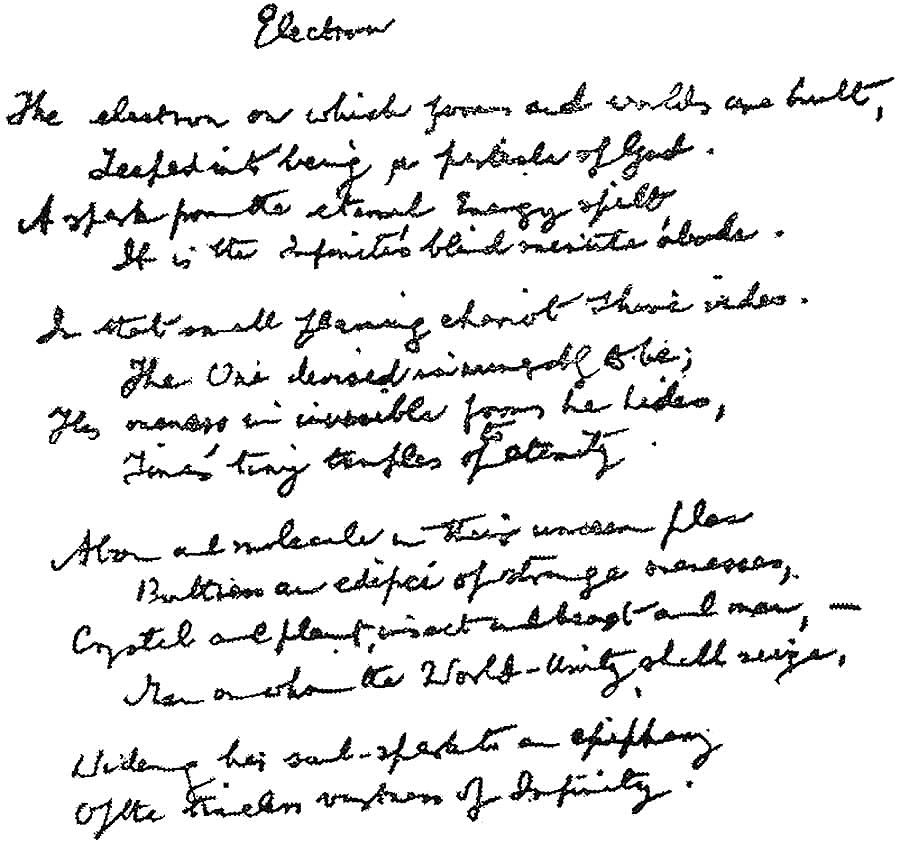 Electron
The electron on which forms and worlds are built,
Leaped into being, a particle of God.
A spark from the eternal Energy spilt
It is the Infinite's blind minute abode.
In that small flaming chariot Shiva rides.
The One devised innumerably to be;
His oneness in invisible forms he hides,
Time's tiny temples to eternity.
Atom and molecule in their unseen plan
Buttress an edifice of strange onenesses,
Crystal and plant, insect and beast and man, —
Man on whom the World-Unity shall seize,
Widening his soul-spark to an epiphany
Of the timeless vastness of Infinity.